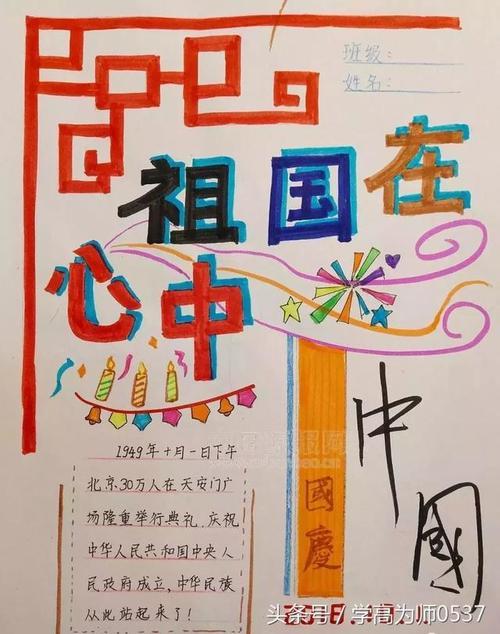 班级:
姓名:
祖国在
心中
1949年十月一日下午
北京30万人在天安门广
场隆重举行典礼,庆祝
中华人民共和国中央人
民政府成立,中华民族
从此站起来了!
國慶
中國
头条号 / 学高为师0537